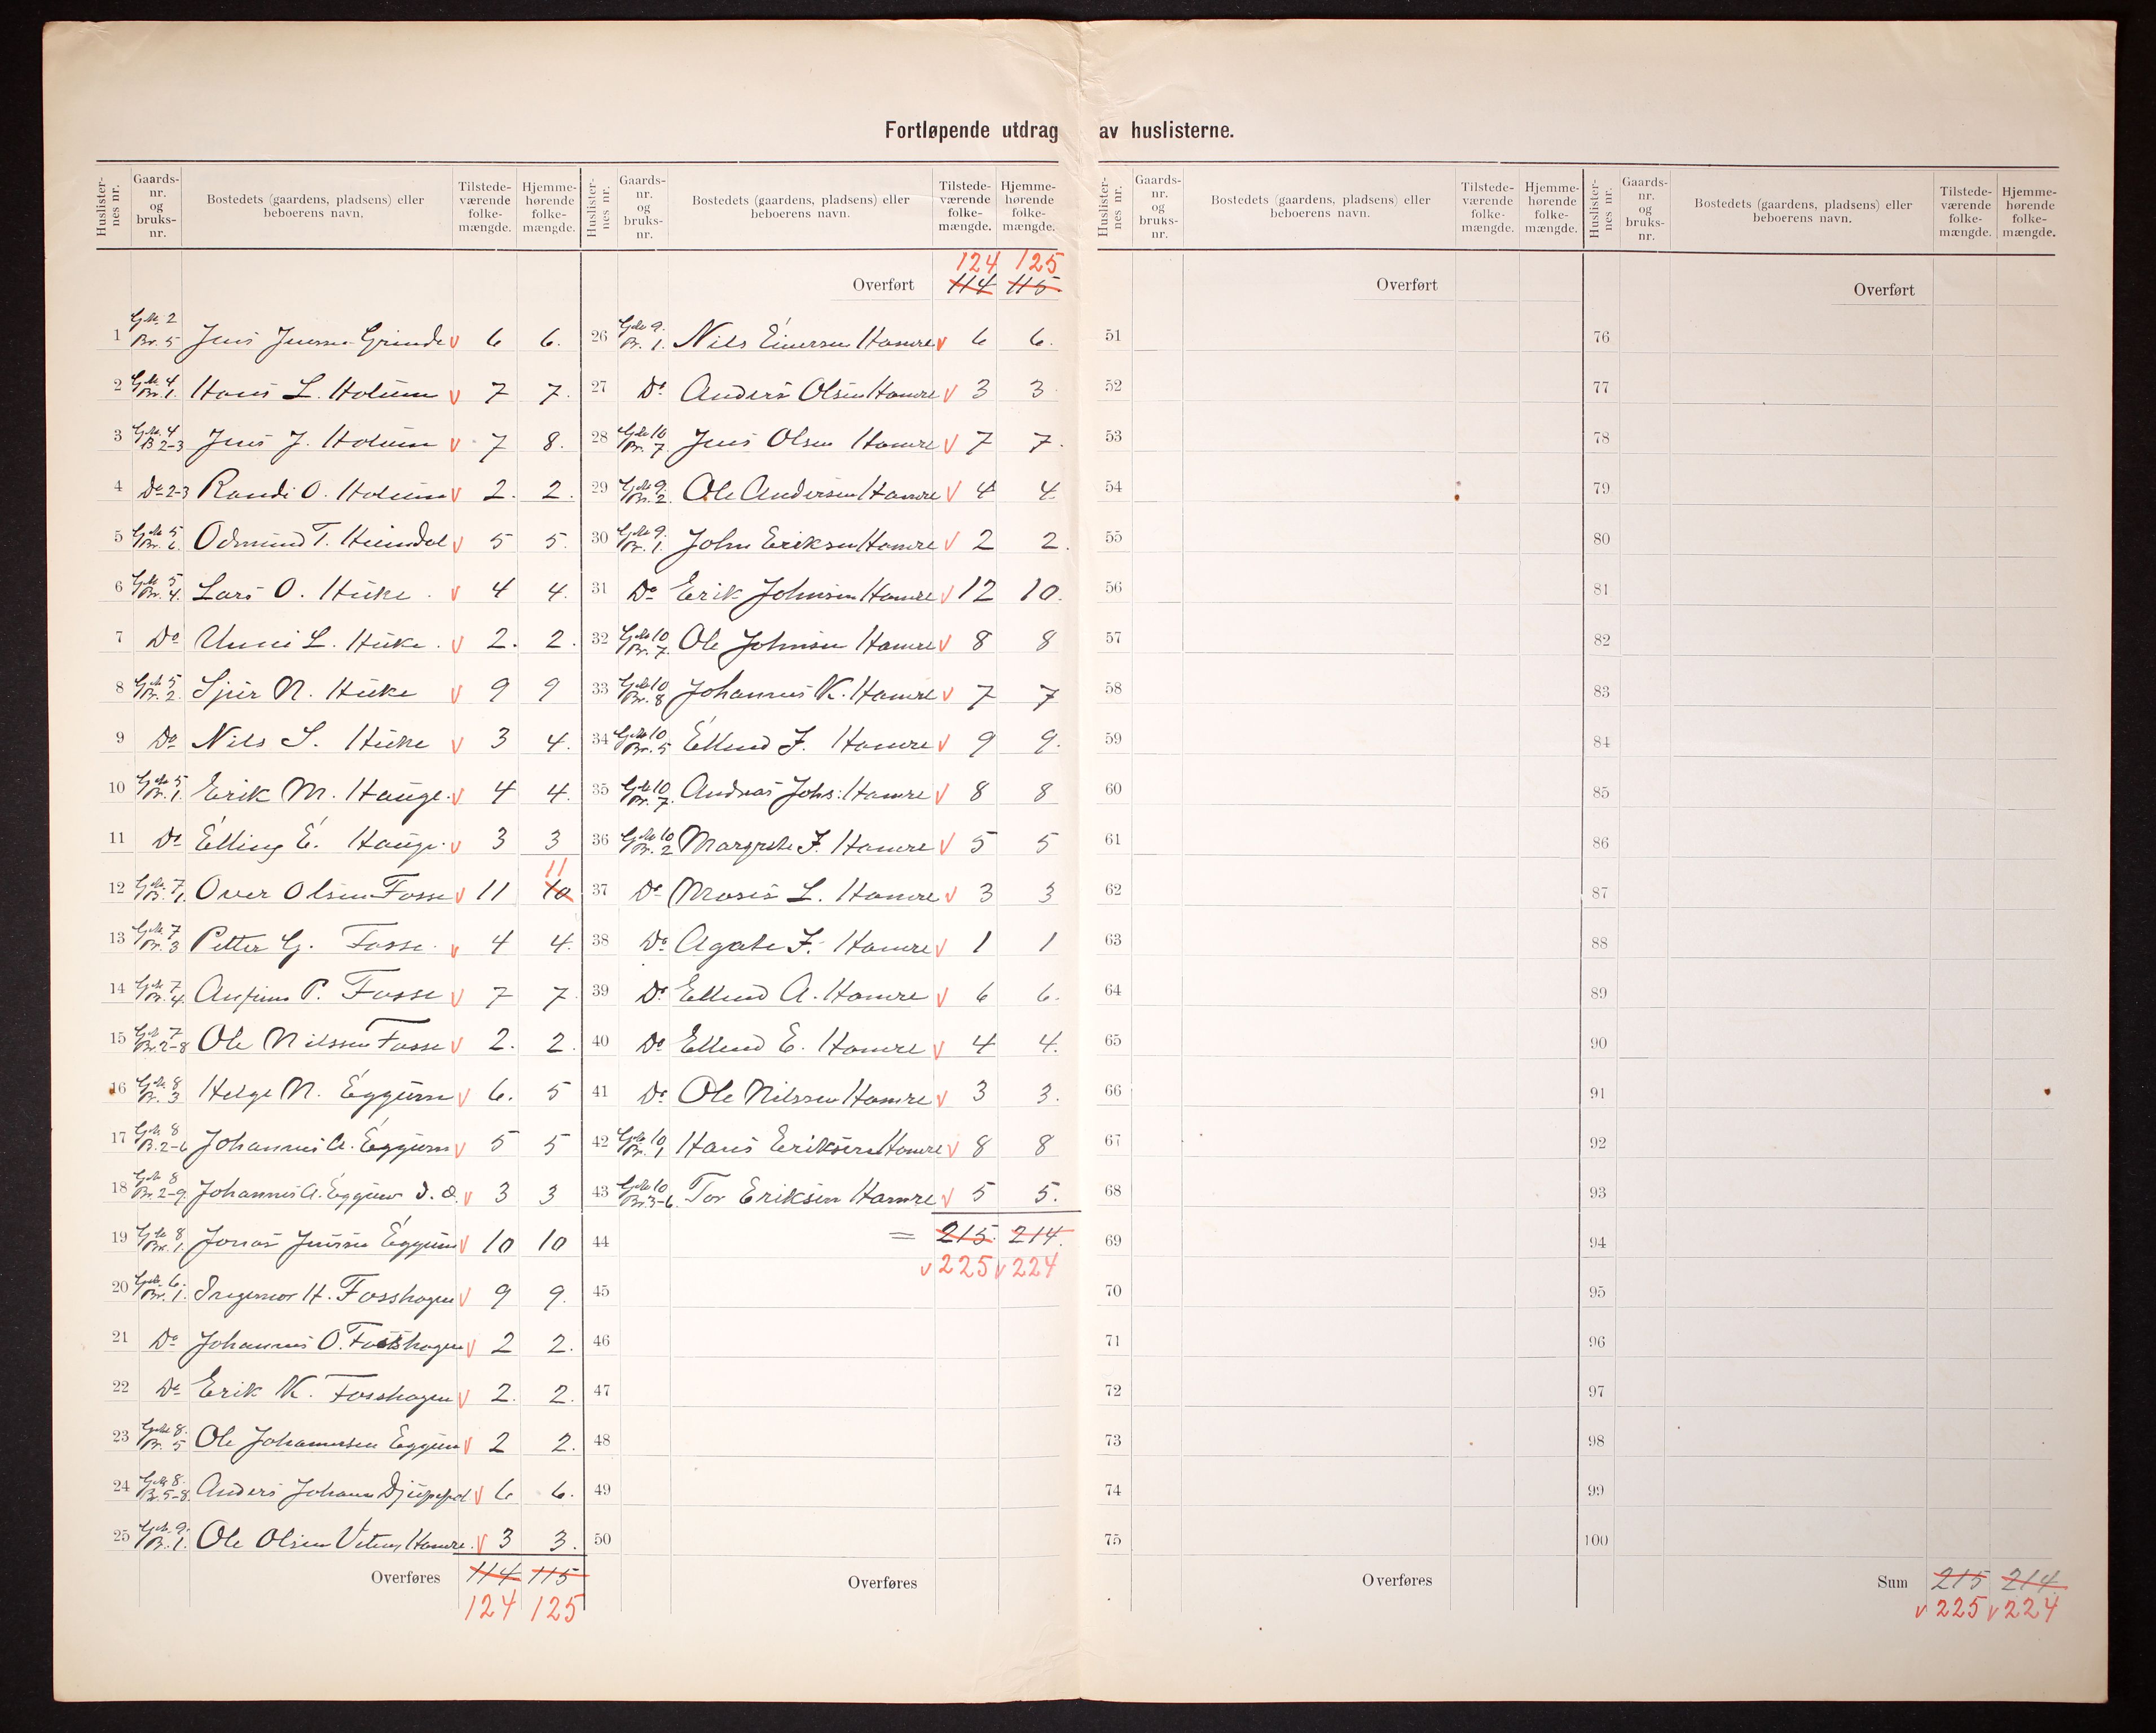 Fortløpende utdrag av huslisterne.
Huslisternes nr. Gaards-nr. og bruks-nr. Bostedets (gaardens, pladsens) eller beboerens navn. Tilstedeværende folkemængde. Hjemmehørende folkemængde.
1 G.№ 2 Br. 5 Jens Jensen Grinde v 6 6.
2 G.№ 4 Br. 1. Hans L. Holum v 7 7.
3 G.№ 4 B 2-3 Jens J. Holum v 7 8.
4 Do 2-3 Randi O. Holum v 2. 2.
5 G.№ 5 Odmund T. v 5 5.
6 G.№ 5 Br. 4. Lars O. Huke v 4 4.
7 Do Unni L. Huke v 2. 2.
8 G.№ 5 Br. 2. Sjur N. Huke v 9 9
9 Do Nils S. Huke v 3 4.
10 G.№ 5 Br. 1. Erik M. Hauge v 4 4.
11 Do Elling E. Hauge v 3 3
12 G.№ 7 Br. 1. Over Olsen Fosse v 11 10 11
13 G.№ 7 Br. 3 Petter G. Fosse v 4 4.
14 G.№ 7 Br. 4. Anfinn P. Fosse v 7 7
15 G.№ 7 Br. 2-8 Ole Nilssen Fosse v 2. 2.
16 G.№ 8 Br. 3 Helge N. Eggum v 6. 5
17 G.№ 8 B. 2-6 Johannes A. Eggum v 5 5
18 G.№ 8 Br. 2-9. Johannes A. Eggum d. æ. v 3 3
19 G.№ 8 Br. 1. Jonas Jensen Eggum v 10 10
20 G.№ 6. Br. 1. Ingemor H. Fosshagen v 9 9.
21 Do Johannes O. Fosshagen v 2 2.
22 Do Erik K. Fosshagen v 2. 2.
23 G.№ 8. Br. 5 Ole Johannesen Eggum v 2 2.
24 G.№ 8. B. 5-8. Anders Johans v 6 6.
25 G.№ 9. B. 1. Ole Olsen Hamre v 3 3.
Overføres 114 115
124 125
Huslisternes nr. Gaards-nr. og bruks-nr. Bostedets (gaardens, pladsens) eller beboerens navn. Tilstedeværende folkemængde. Hjemmehørende folkemængde.
124 125
Overført 114 115
26 G.№ 9. Br. 1. Nils Einersen Hamre v 6 6.
27 Do Anders Olsen Hamre v 3 3
28 G.№ 10 Br. 7. Jens Olsen Hamre v 7 7.
29 G.№ 9. Br. 2. Ole Andersen Hamre v 4 4.
30 G.№ 9. Br. 1. John Eriksen Hamre v 2 2.
31 Do Erik Johnsen Hamre v 12 10.
32 G.№ 10 Br. 7. Ole Johnsen Hamre v 8 8
33 G.№ 10 Br. 8 Johannes K. Hamre v 7 7
34 G.№ 10 Br. 5 Ellend J. Hamre v 9 9.
35 G.№ 10 Br. 7. Andreas Johs. Hamre v 8 8
36 G.№ 10 Br. 2 Margrete J. Hamre v 5 5
37 Do Moses L. Hamre v 3 3
38 Do Agate J. Hamre v 1 1
39 Do Ellend A. Hamre v 6 6.
40 Do Ellend E. Hamre v 4 4.
41 Do Ole Nilssen Hamre v 3 3.
42 G.№ 10 Br. 1 Hans Eriksen Hamre v 8 8
43 G.№ 10 Br. 3-6. Tor Eriksen Hamre v 5 5.
44 = 215. 214.
v 225 v 224
45
46
47
48
49
50
Overføres
Huslisternes nr. Gaards-nr. og bruks-nr. Bostedets (gaardens, pladsens) eller beboerens navn. Tilstedeværende folkemængde. Hjemmehørende folkemængde.
Overført
51
52
53
54
55
56
57
58
59
60
61
62
63
64
65
66
67
68
69
70
71
72
73
74
75
Overføres
Huslisternes nr. Gaards-nr. og bruks-nr. Bostedets (gaardens, pladsens) eller beboerens navn. Tilstedeværende folkemængde. Hjemmehørende folkemængde.
Overført
76
77
78
79
80
81
82
83
84
85
86
87
88
89
90
91
92
93
94
95
96
97
98
99
100
Sum 215 214.
v 225 v 224